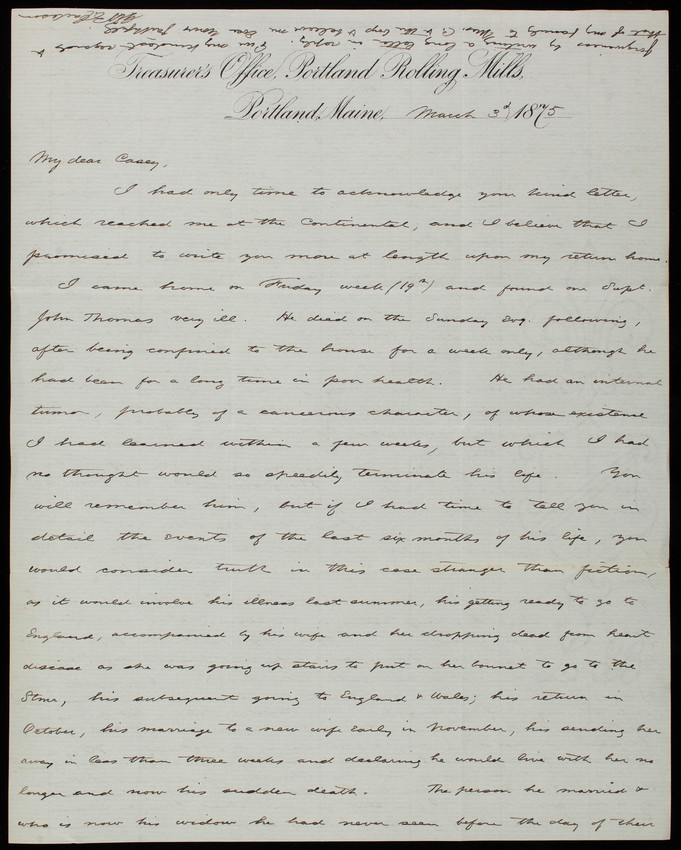 Treasurer's Office, Portland Rolling Mills,
Portland, Maine, March 3d 1875
My dear Casey,
I had only time to acknowledge your kind letter,
which reached me at the Continental, and I believe that I
promised to write you more at length upon my return home.
I came home on Friday week (19th) and found our Supt.
John Thomas very ill. He died on the Sunday Evg. following,
after being confined to the house for a week only, although he
had been for a long time in poor health. He had an internal
tumor, probably of a cancerous character, of whose existence
I had learned within a few weeks, but which I had
no thought would so speedily terminate his life. You
will remember him, but if I had time to tell you in
detail the events of the last six months of his life, you
would consider truth in this case stranger than fiction,
as it would involve his illness last summer, his getting ready to go to
England, accompanied by his wife and her dropping dead from heart
disease as she was going up stairs to put on her bonnet to go to the
Stmr, his subsequent going to England & Wales; his return in
October, his marriage to a new wife early in November, his sending her
away in less than three weeks and declaring he would live with her no
longer and now his sudden death. The person he married &
who is now his widow he had never seen before the day of their
forgiveness by writing a long letter in reply. Give my kindest regards &
that of my family to Mrs. C. & the boys & believe me Ever Yours faithfully